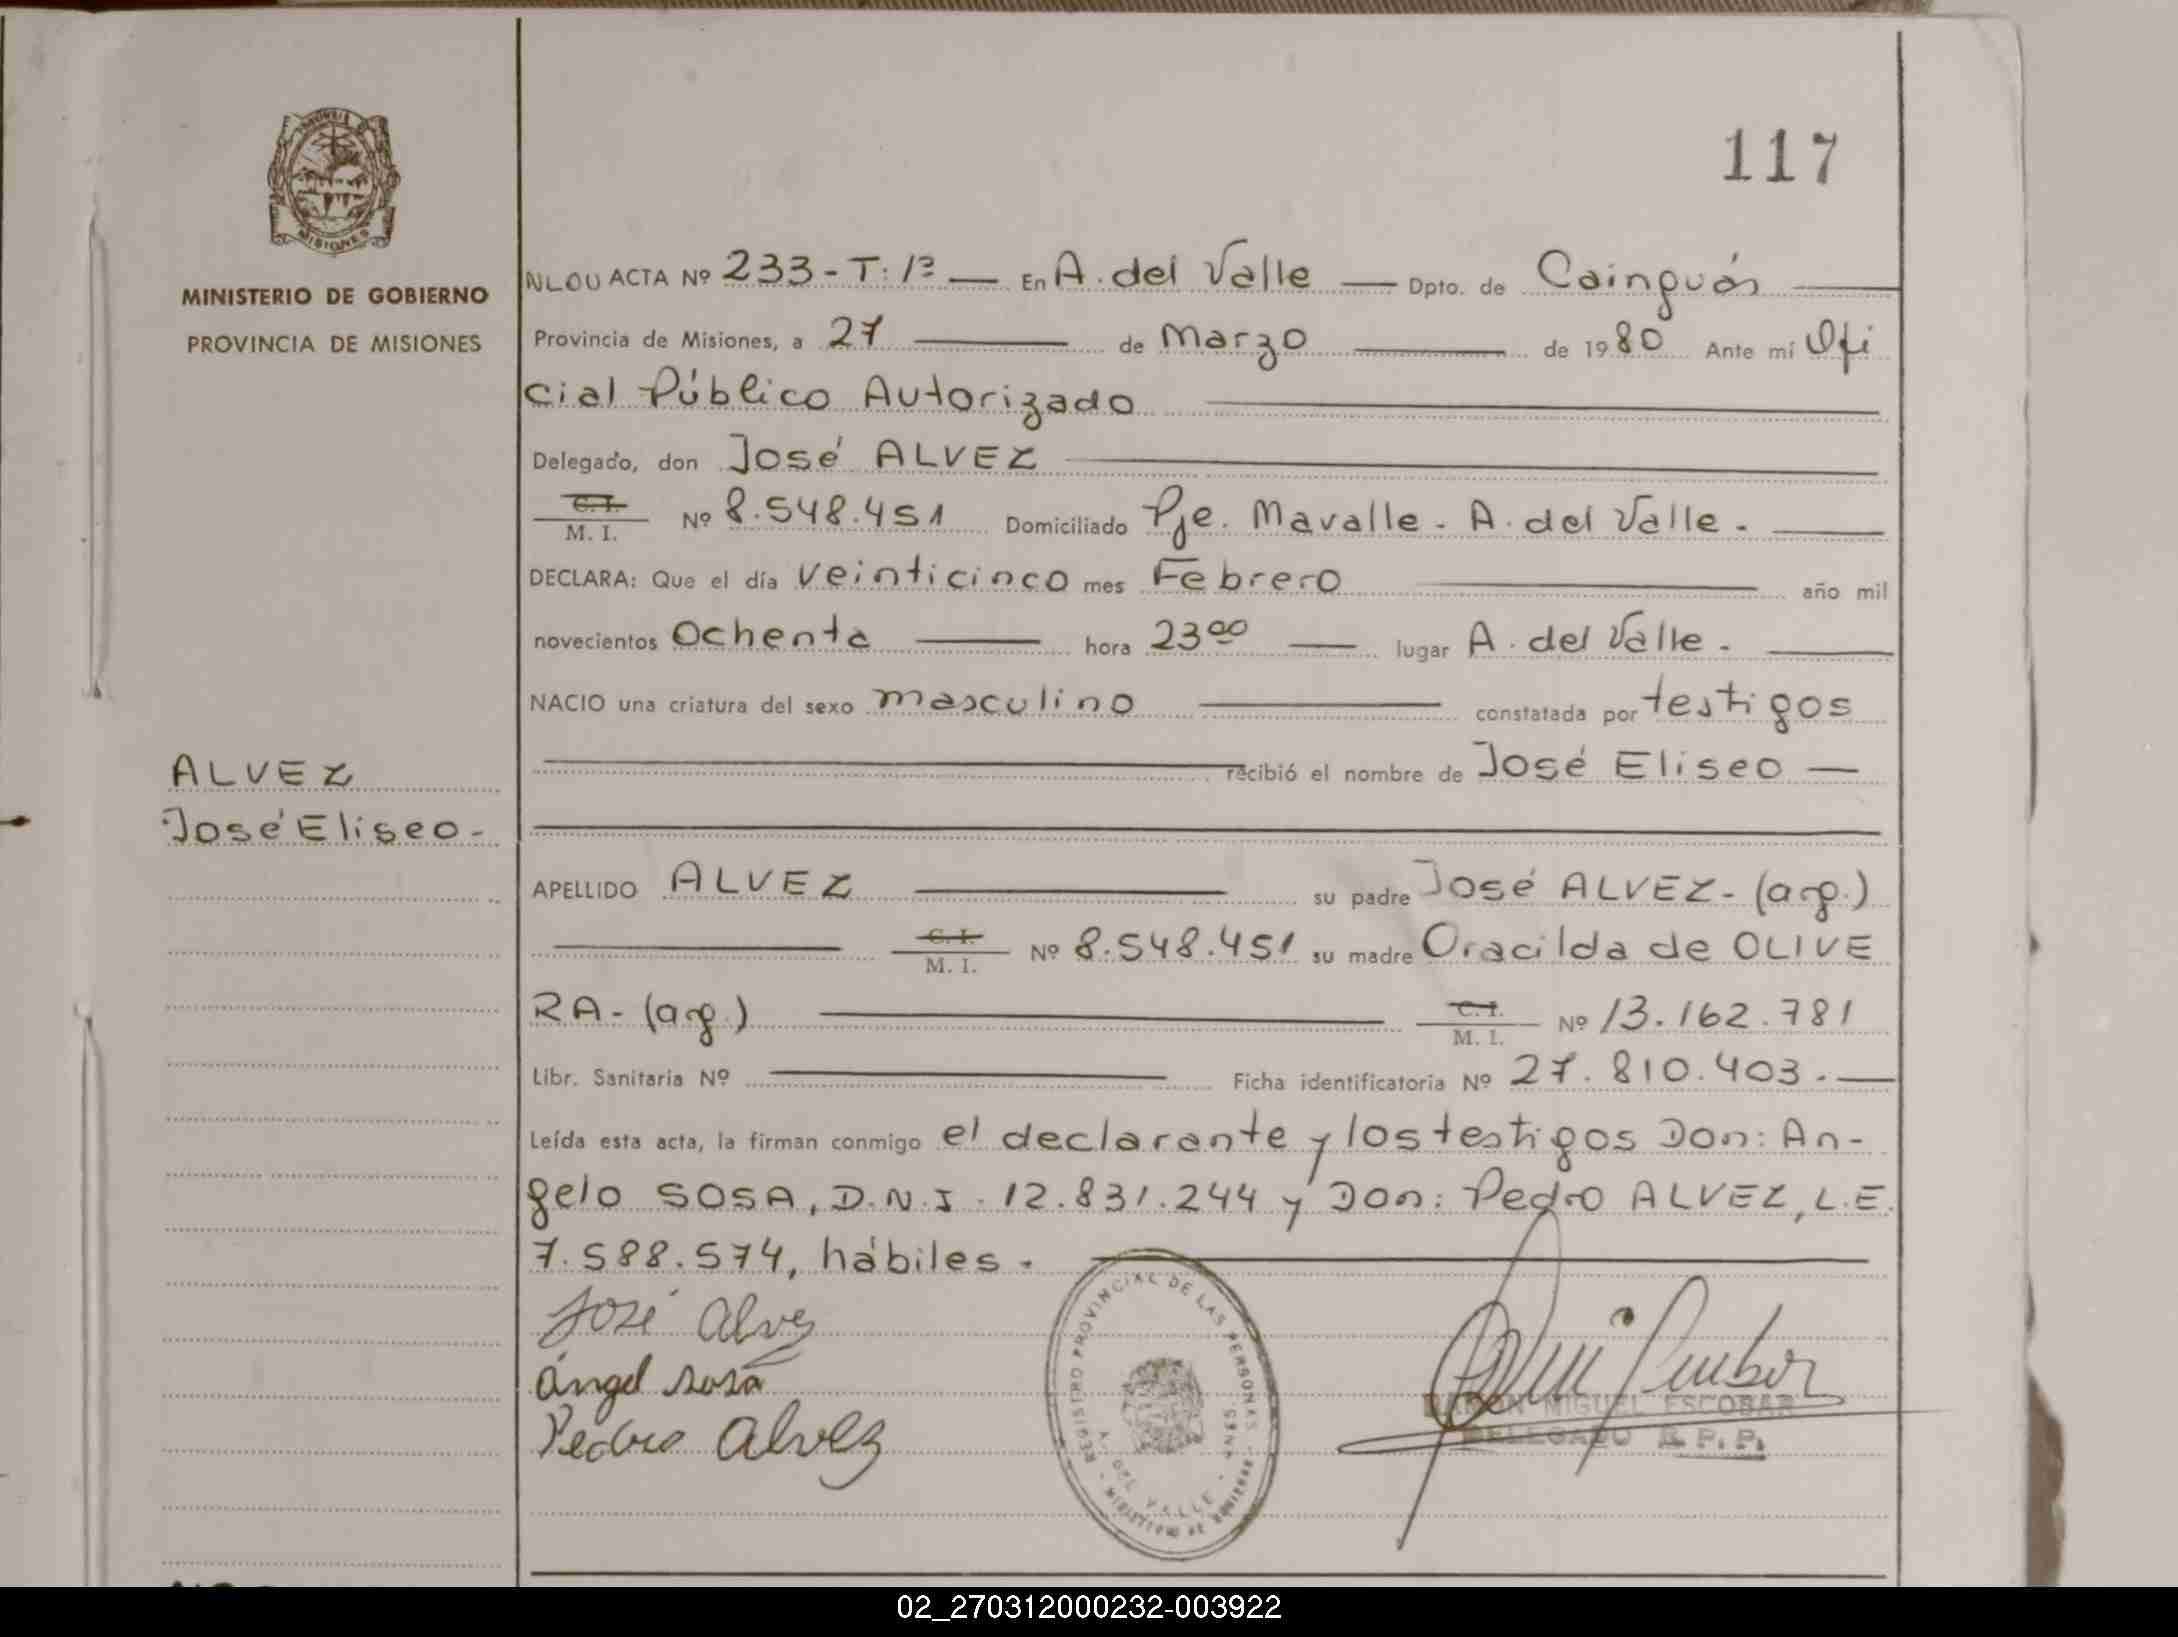 117
MINISTERIO DE GOBIERNO
PROVINCIA DE MISIONES
ACTA Nº 233 - T: 1º — En A. del Valle — Dpto. de Cainguás
Provincia de Misiones, a 27 de Marzo de 1980 Ante mí Ofi
cial Público Autorizado
Delegado, don José ALVEZ
C. I.
M. I. Nº 8.548.451 Domiciliado Pje. Mavalle - A. del Valle.
DECLARA: Que el día veinticinco mes Febrero año mil
novecientos Ochenta hora 23⁰⁰ lugar A. del Valle.
NACIO una criatura del sexo masculino constatada por testigos
recibió el nombre de José Eliseo —
ALVEZ
José Eliseo -
APELLIDO ALVEZ su padre José ALVEZ - (arg.)
C. I.
M. I. Nº 8.548.451 su madre Oracilda de OLIVE
RA - (arg.) C. I.
M. I. Nº 13.162.781
Libr. Sanitaria Nº Ficha identificatoria Nº 27.810.403.
Leída esta acta, la firman conmigo el declarante y los testigos Don: An-
gelo SOSA, D.N.I. 12.831.244 y Don: Pedro ALVEZ, L.E.
7.588.574, hábiles.
José Alvez
Ángel Sosa
Pedro Alvez
REGISTRO PROVINCIAL DE LAS PERSONAS
A. DEL VALLE
RAMON MIGUEL ESCOBAR
DELEGADO R. P. P.
02_270312000232-003922